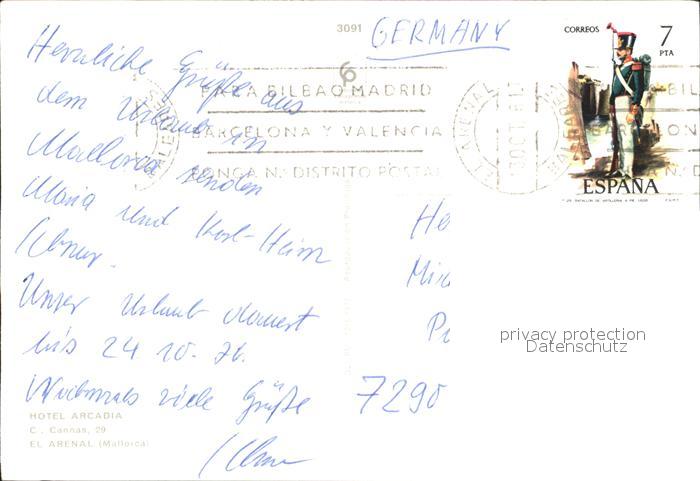 3091
GERMANY
CORREOS 7
PTA
Herzliche Grüße aus
dem Urlaub in
Mallorca senden
Maria und Karl-Heinz
Unser Urlaub dauert
bis 24 10. 76.
Nochmals viele Grüße
BILBAO MADRID
BARCELONA Y VALENCIA
PONGA N.º DISTRITO POSTAL
EL ARENAL
ESPAÑA
He
Mic
7290
privacy protection
Datenschutz
HOTEL ARCADIA
C. Cannas, 29
EL ARENAL (Mallorca)